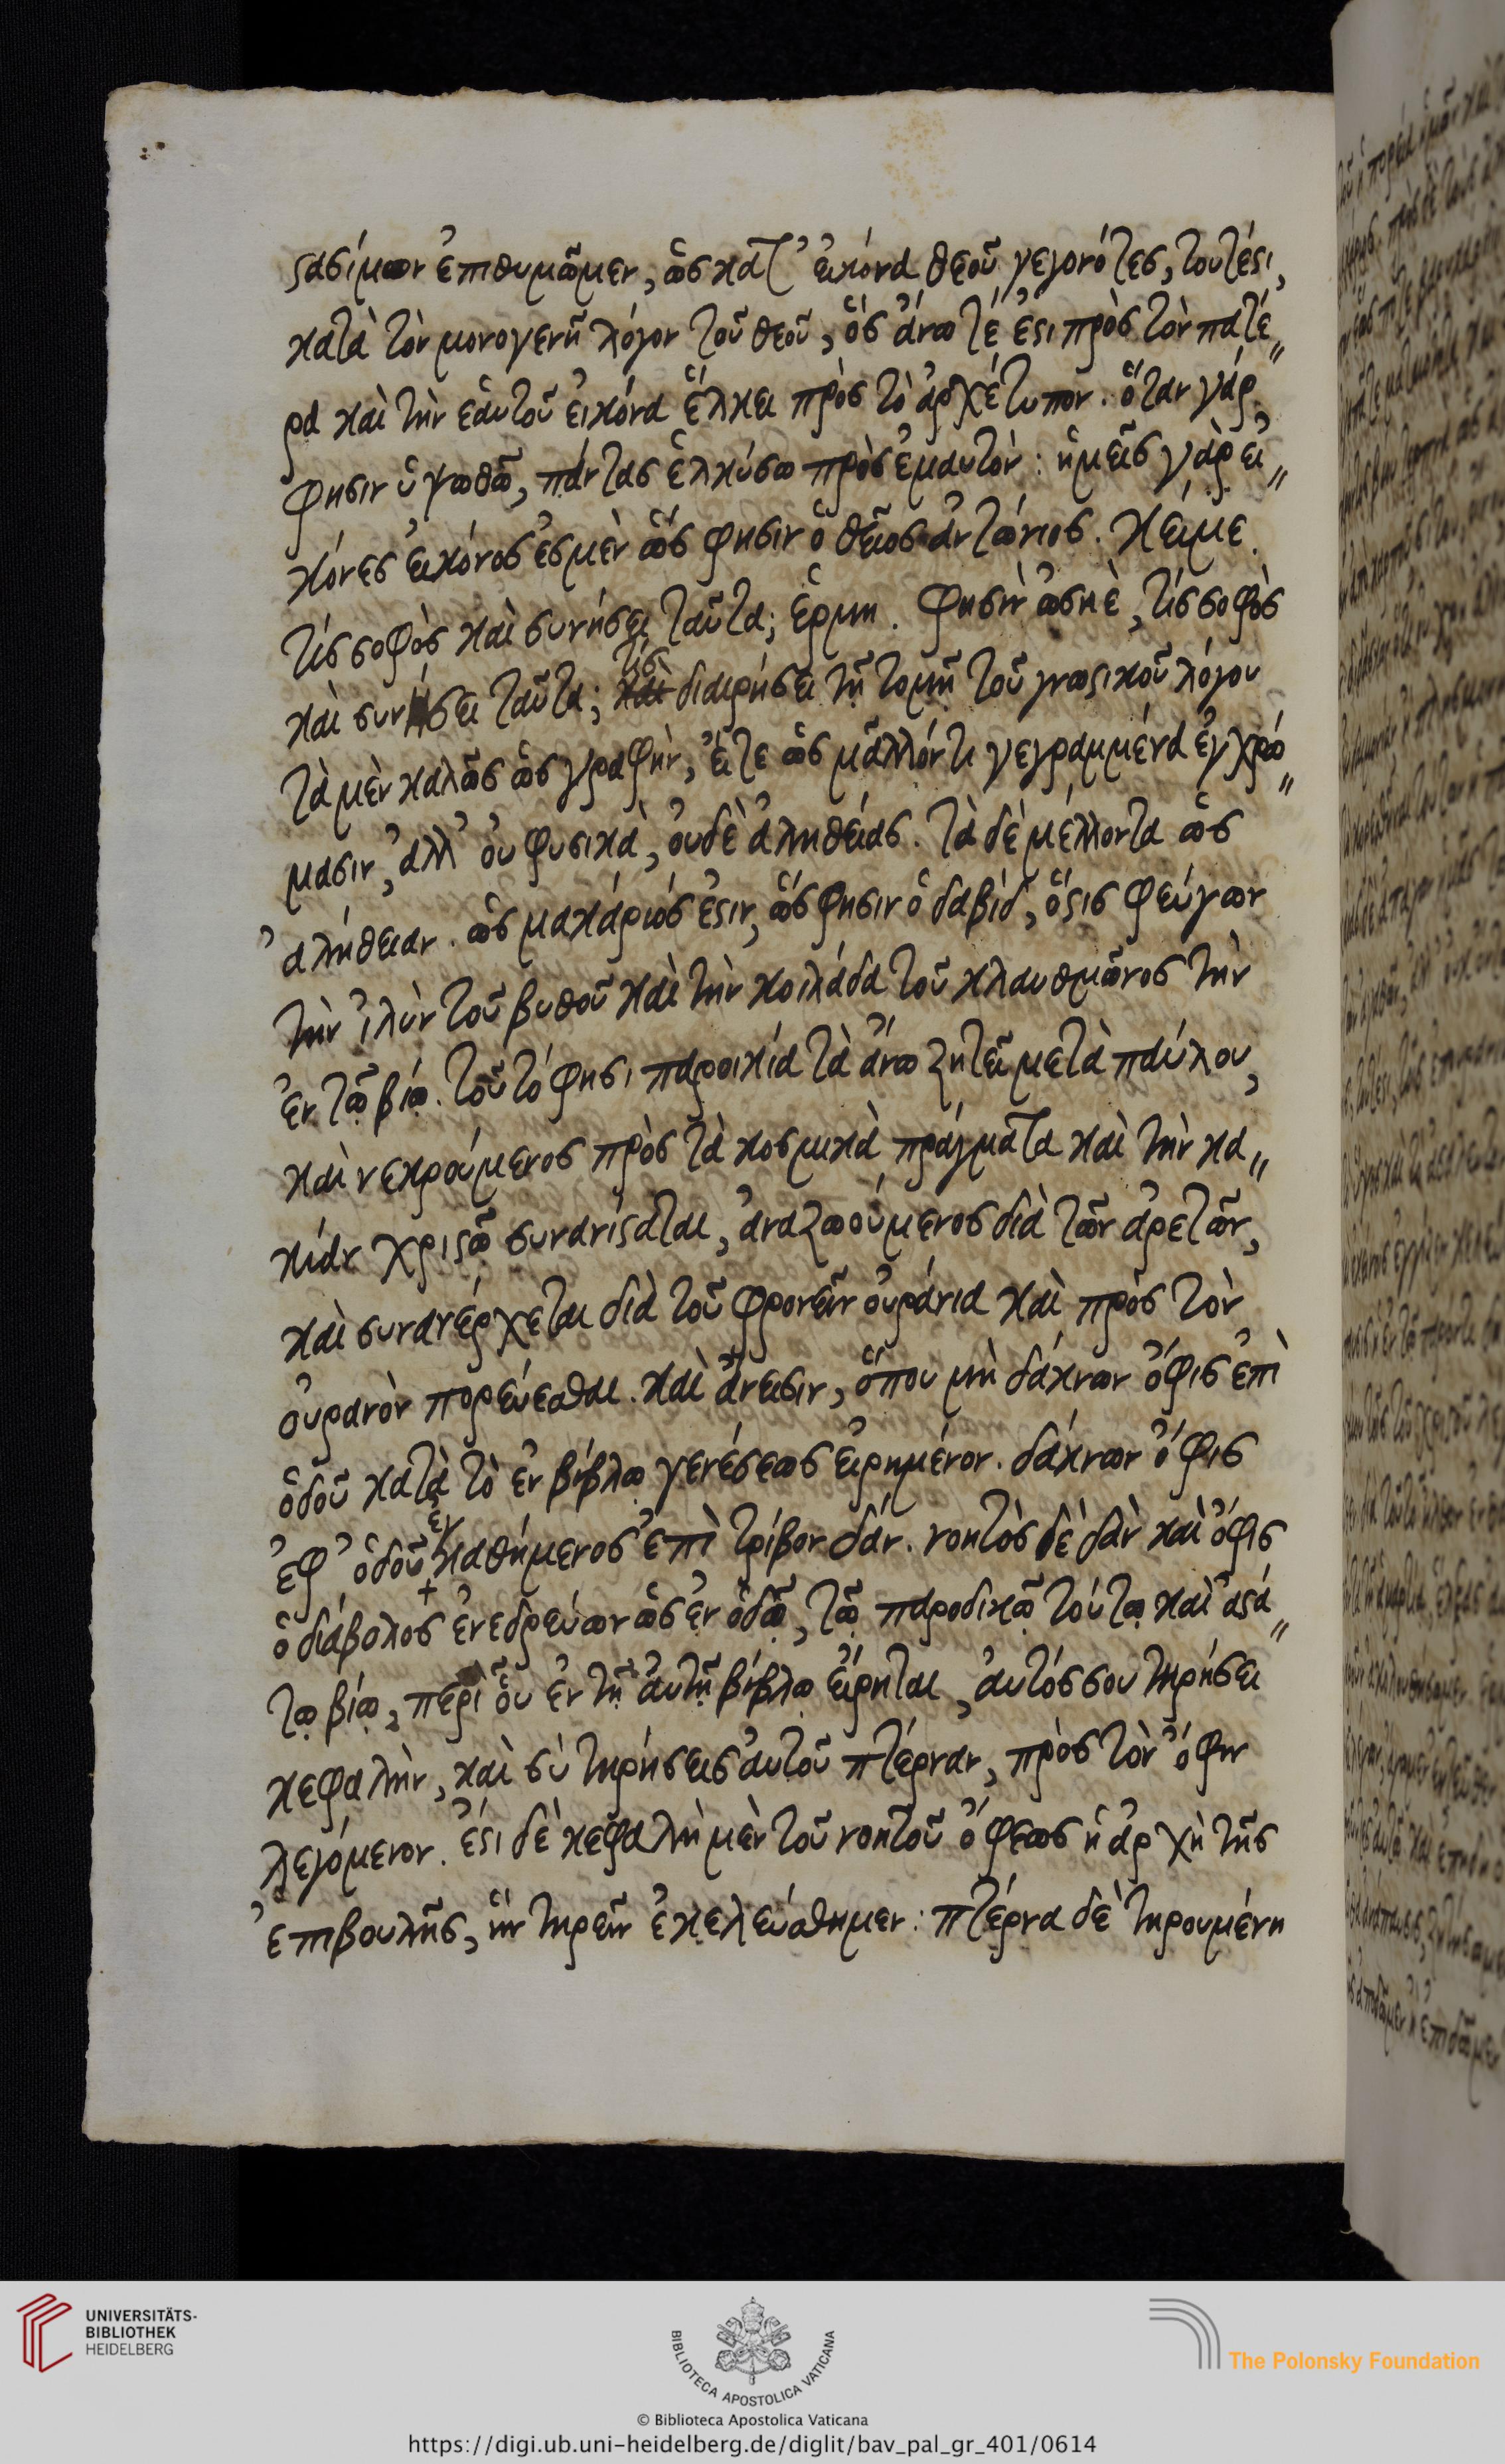 στασίμων ἐπιθυμῶμεν, ὡς κατ' εἰκόνα θεοῦ γεγονότες, τουτέστι,
κατὰ τὸν μονογενῆ λόγον τοῦ θεοῦ, ὅς ἄνω τέ ἐστι πρὸς τὸν πατέ〃
ρα καὶ τὴν ἑαυτοῦ εἰκόνα ἕλκει πρὸς τὸ ἀρχέτυπον. ὅταν γάρ
φησιν ὑψωθῶ, πάντας ἑλκύσω πρὸς ἐμαυτὸν: ἡμεῖς γὰρ εἰ〃
κόνες εἰκόνος ἐσμὲν ὥς φησιν ὁ θεῖος ἀντώνιος. Κείμε.
τίς σοφὸς καὶ συνήσει ταῦτα; ἑρμη. φησὶν ὠσηὲ, τίς σοφὸς
καὶ συνήσει ταῦτα; τίς διαιρήσει τῇ τομῇ τοῦ γνωστικοῦ λόγου
τὰ μὲν καλῶς ὡς γραφὴν, εἴτε ὡς μᾶλλόν τι γεγραμμένα ἐν χρώ〃
μασιν, ἀλλ' οὐ φυσικὰ, οὐδὲ ἀληθείας. τὰ δὲ μέλλοντα ὡς
ἀλήθειαν. ὡς μακάριός ἐστιν, ὥς φησιν ὁ δαβίδ, ὅστις φεύγων
τὴν ἰλὺν τοῦ βυθοῦ καὶ τὴν κοιλάδα τοῦ κλαυθμῶνος τὴν
ἐν τῷ βίῳ. τοῦτό φησι παροικία τὰ ἄνω ζητεῖ μετὰ παύλου,
καὶ νεκρούμενος πρὸς τὰ κοσμικὰ πράγματα καὶ τὴν κα〃
κίαν χριστῷ συνανίσταται, ἀναζωούμενος διὰ τῶν ἀρετῶν,
καὶ συνανέρχεται διὰ τοῦ φρονεῖν οὐράνια καὶ πρὸς τὸν
οὐρανὸν πορεύεσθαι. καὶ ἄνεισιν, ὅπου μὴ δάκνων ὄφις ἐπὶ
ὁδοῦ κατὰ τὸ ἐν βίβλῳ γενέσεως εἰρημένον. δάκνων ὄφις
ἐφ' ὁδοῦ ἐγκαθήμενος ἐπὶ τρίβον δάν. νοητὸς δὲ δὰν καὶ ὄφις
ὁ διάβολος ἐνεδρεύων ὡς ἐν ὁδῷ, τῷ παροδικῷ τούτῳ καὶ ἀστά〃
τῳ βίῳ, περὶ οὗ ἐν τῇ αὐτῇ βίβλῳ εἴρηται, αὐτός σου τηρήσει
κεφαλὴν, καὶ σὺ τηρήσεις αὐτοῦ πτέρναν, πρὸς τὸν ὄφιν
λεγόμενον. ἔστι δὲ κεφαλὴ μὲν τοῦ νοητοῦ ὄφεως ἡ ἀρχὴ τῆς
ἐπιβουλῆς, ἣν τηρεῖν ἐκελεύσθημεν: πτέρνα δὲ τηρουμένη
UNIVERSITÄTS-
BIBLIOTHEK
HEIDELBERG
BIBLIOTECA APOSTOLICA VATICANA
The Polonsky Foundation
© Biblioteca Apostolica Vaticana
https://digi.ub.uni-heidelberg.de/diglit/bav_pal_gr_401/0614